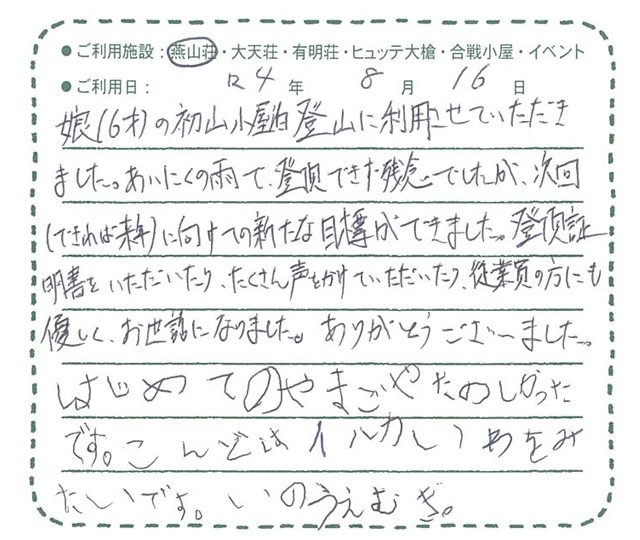 ●ご利用施設：燕山荘・大天荘・有明荘・ヒュッテ大槍・合戦小屋・イベント
●ご利用日： R4 年 8 月 16 日
娘(6才)の初山小屋泊登山に利用させていただき
ました。あいにくの雨で、登頂できず残念でしたが、次回
(できれば来年)に向けての新たな目標ができました。登頂証
明書をいただいたり、たくさん声をかけていただいたり、従業員の方にも
優しく、お世話になりました。ありがとうございました。
はじめてのやまごやたのしかった
です。こんどはイルカしつめをみ
たいです。いのうえむぎ。